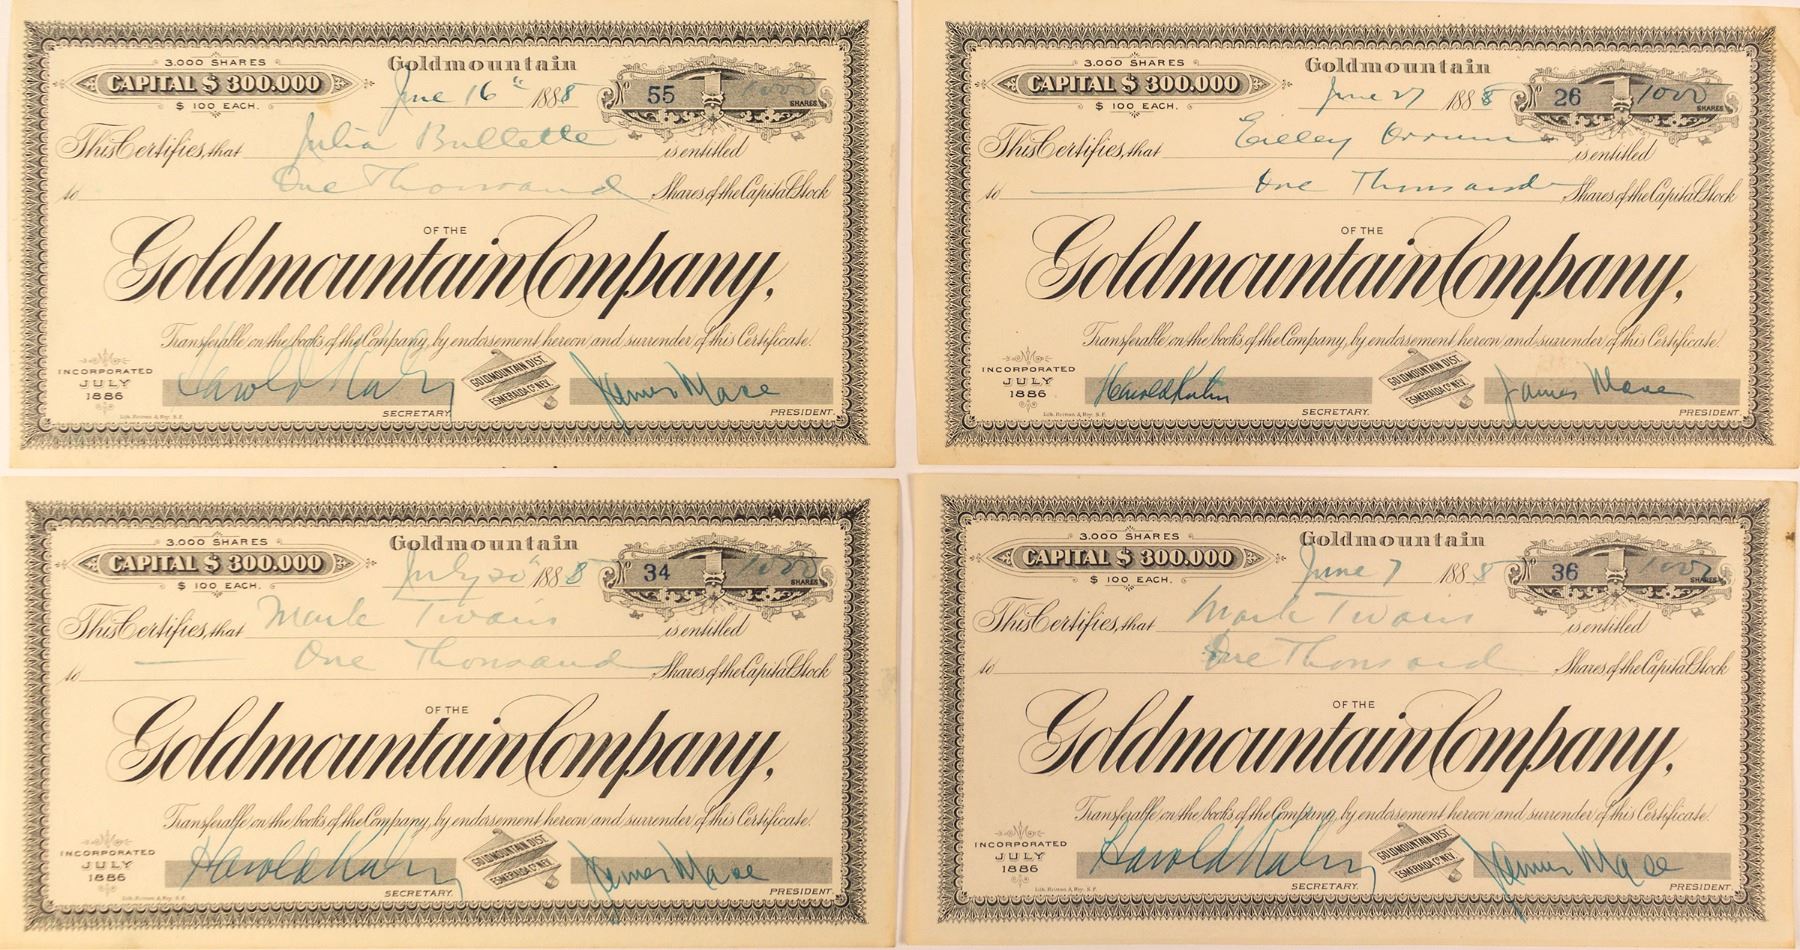 3.000 SHARES
CAPITAL $ 300.000
$ 100 EACH.
Goldmountain
June 16th 1888
No 55 1000 SHARES
This Certifies, that Julia Bullette is entitled
to One Thousand Shares of the Capital Stock
OF THE
Goldmountain Company,
Transferable on the books of the Company, by endorsement hereon and surrender of this Certificate.
INCORPORATED
JULY
1886
GOLDMOUNTAIN DIST.
ESMERALDA CO. NEV.
James Mace
SECRETARY.
PRESIDENT.
Lith. Herman & Hoy. S.F.
3.000 SHARES
CAPITAL $ 300.000
$ 100 EACH.
Goldmountain
June 27 1888
No 26 1000 SHARES
This Certifies, that Eilley Orrum is entitled
to One Thousand Shares of the Capital Stock
OF THE
Goldmountain Company,
Transferable on the books of the Company, by endorsement hereon and surrender of this Certificate.
INCORPORATED
JULY
1886
GOLDMOUNTAIN DIST.
ESMERALDA CO. NEV.
James Mace
SECRETARY.
PRESIDENT.
3.000 SHARES
CAPITAL $ 300.000
$ 100 EACH.
Goldmountain
July 20th 1888
No 34 1000 SHARES
This Certifies, that Mark Twain is entitled
to One Thousand Shares of the Capital Stock
OF THE
Goldmountain Company,
Transferable on the books of the Company, by endorsement hereon and surrender of this Certificate.
INCORPORATED
JULY
1886
GOLDMOUNTAIN DIST.
ESMERALDA CO. NEV.
James Mace
SECRETARY.
PRESIDENT.
3.000 SHARES
CAPITAL $ 300.000
$ 100 EACH.
Goldmountain
June 7 1888
No 36 1000 SHARES
This Certifies, that Mark Twain is entitled
to One Thousand Shares of the Capital Stock
OF THE
Goldmountain Company,
Transferable on the books of the Company, by endorsement hereon and surrender of this Certificate.
INCORPORATED
JULY
1886
GOLDMOUNTAIN DIST.
ESMERALDA CO. NEV.
James Mace
SECRETARY.
PRESIDENT.